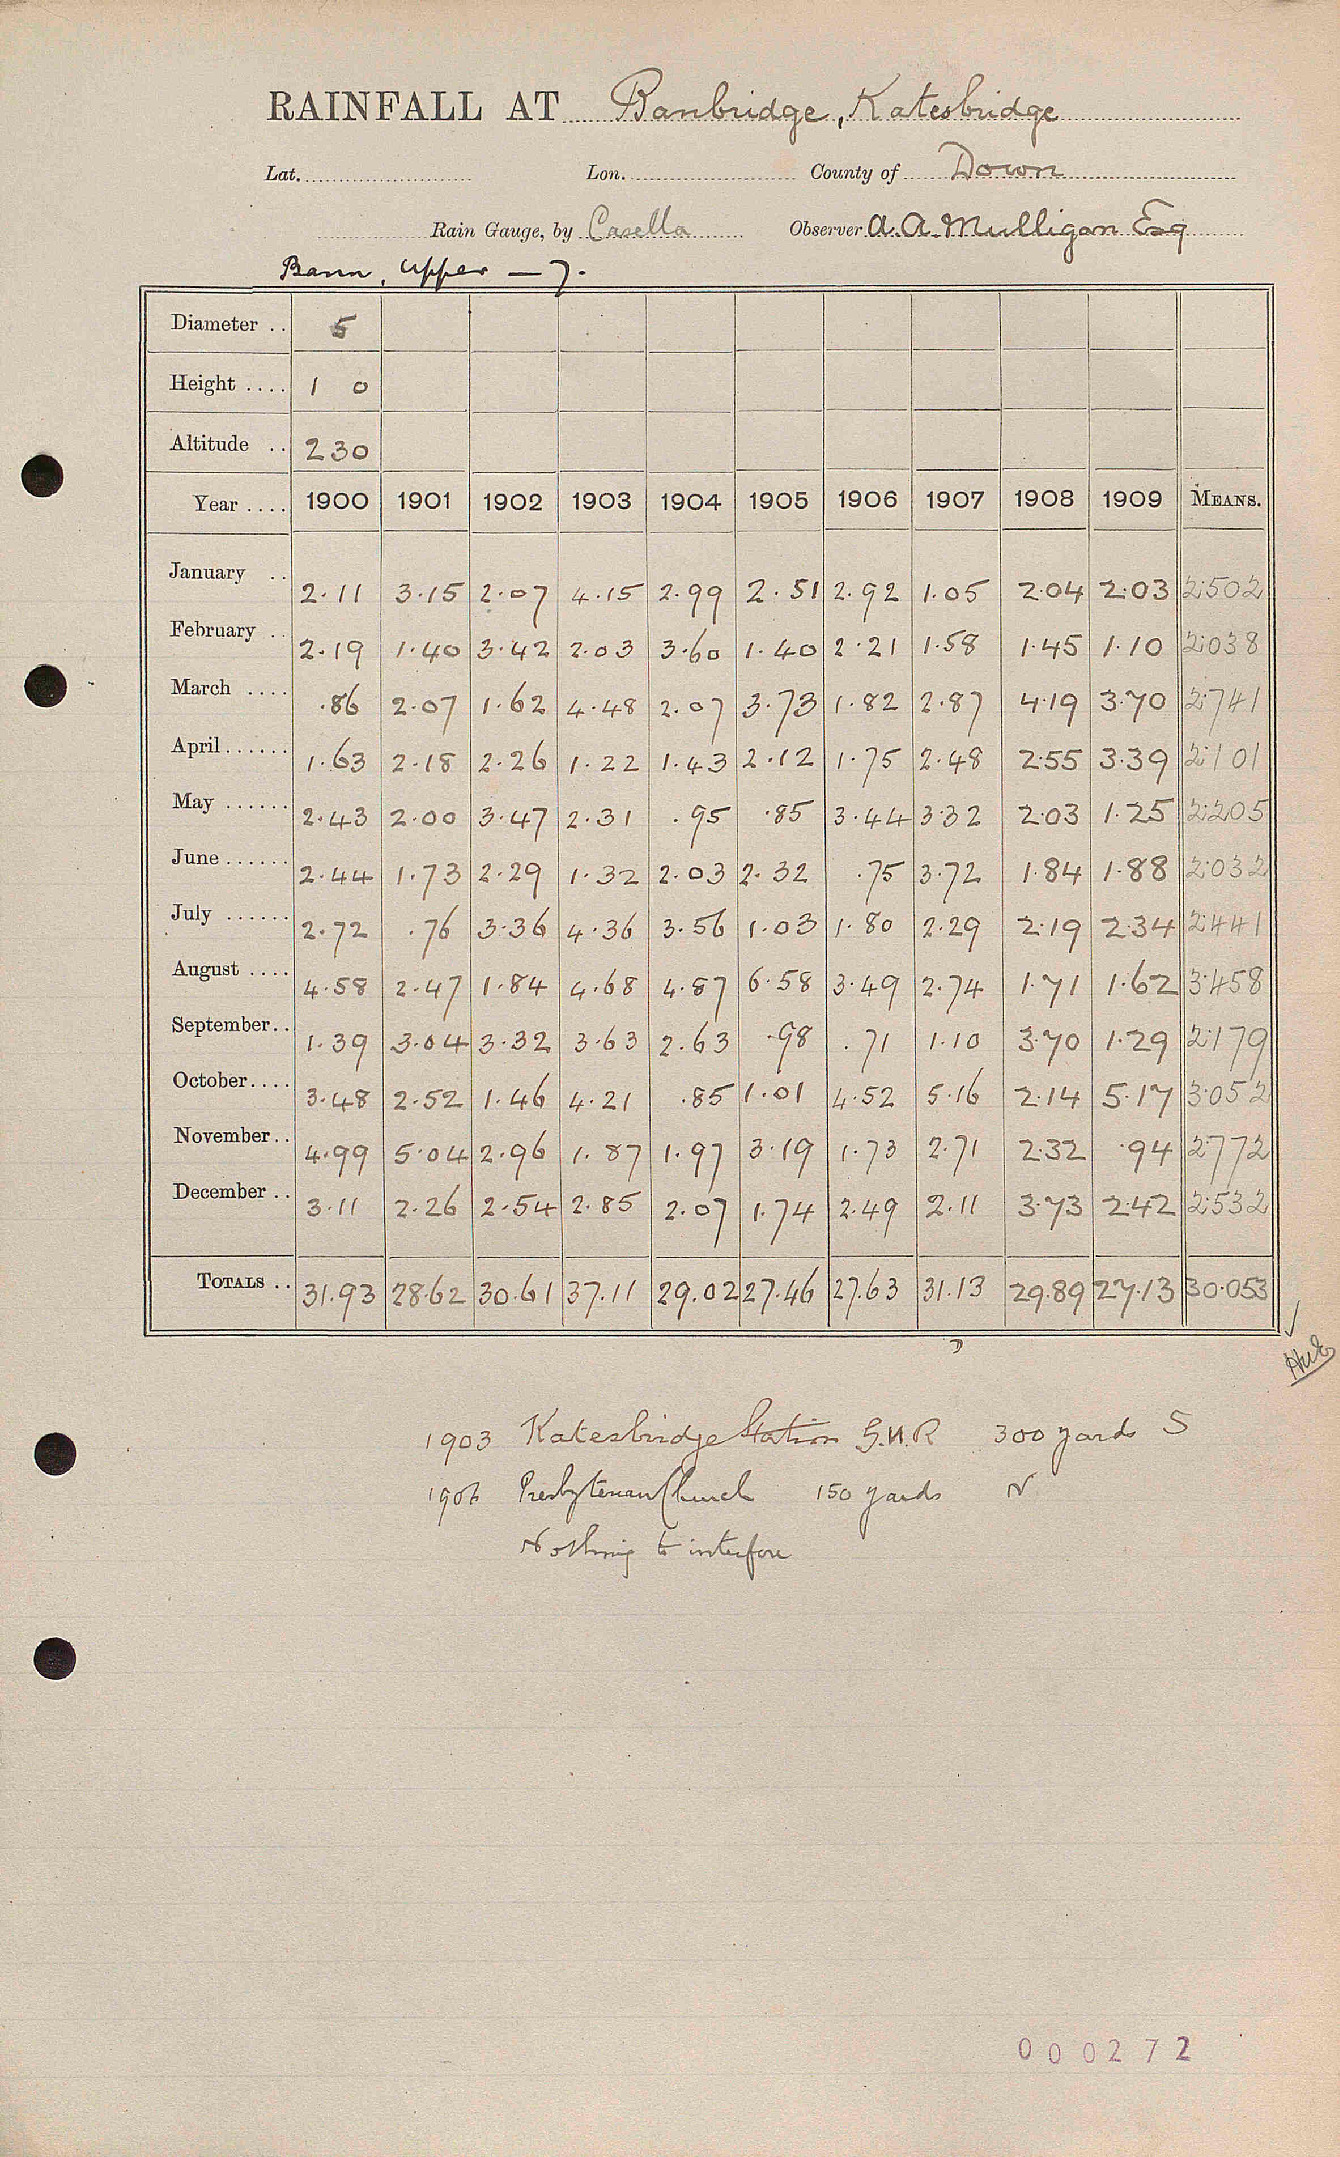 RAINFALL AT Banbridge, Katesbridge
Lat. Lon. County of Down
Rain Gauge, by Casella Observer A. A. Mulligan Esq
Bann, Upper — 7.
Diameter .. 5
Height .... 1 0
Altitude .. 230
Year .... 1900 1901 1902 1903 1904 1905 1906 1907 1908 1909 MEANS.
January .. 2.11 3.15 2.07 4.15 2.99 2.51 2.92 1.05 2.04 2.03 2.502
February .. 2.19 1.40 3.42 2.03 3.60 1.40 2.21 1.58 1.45 1.10 2.038
March .... .86 2.07 1.62 4.48 2.07 3.73 1.82 2.87 4.19 3.70 2.741
April ...... 1.63 2.18 2.26 1.22 1.43 2.12 1.75 2.48 2.55 3.39 2.101
May ...... 2.43 2.00 3.47 2.31 .95 .85 3.44 3.32 2.03 1.25 2.205
June ...... 2.44 1.73 2.29 1.32 2.03 2.32 .75 3.72 1.84 1.88 2.032
July ...... 2.72 .76 3.36 4.36 3.56 1.03 1.80 2.29 2.19 2.34 2.441
August .... 4.58 2.47 1.84 4.68 4.87 6.58 3.49 2.74 1.71 1.62 3.458
September .. 1.39 3.04 3.32 3.63 2.63 .98 .71 1.10 3.70 1.29 2.179
October .... 3.48 2.52 1.46 4.21 .85 1.01 4.52 5.16 2.14 5.17 3.052
November .. 4.99 5.04 2.96 1.87 1.97 3.19 1.73 2.71 2.32 .94 2.772
December .. 3.11 2.26 2.54 2.85 2.07 1.74 2.49 2.11 3.73 2.42 2.532
TOTALS .. 31.93 28.62 30.61 37.11 29.02 27.46 27.63 31.13 29.89 27.13 30.053
1903 Katesbridge Station G.N.R 300 yards S
1906 Presbyterian Church 150 yards N
Nothing to interfere
000272